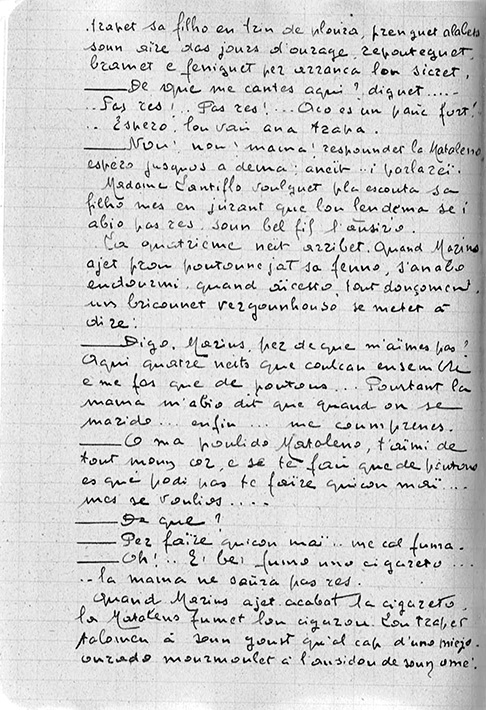 trapet sa filho en trin de ploura, prenguet alabets
soun aire das jours d'ourage, repouteguet,
bramet e feniguet per arranca lou sicret,
—— De que me cantes aqui? diguet.....
.. Pas res!.. Pas res!... Oco es un pauc fort!
.. Espero, lou vau ana trapa.
—— Nou! nou! mama! respoundet la Mataleno,
espero jusquos a dema; aneit.. i parlarei.
Madamo Cantiflo voulguet pla escouta sa
filho mes en jurant que lou lendema se i
abio pas res, soun bel fil l'ausirio.
La quatrieme neit arribet. Quand Marius
ajet prou poutounejat sa fenno, s'anabo
endourmi, quand aicesto, tout douçomen,
un briconnet vergounhouso se metet à
dire:
—— Digo, Marius, per de que m'aimes pas?
Aqui quatre neits que coulcan ensemble
e me fas que de poutous... Pourtant la
mama m'abio dit que quand on se
marido... enfin.... me coumprenes.
—— O ma poulido Mataleno, t'aimi de
tout moun cor, e se te fau que de poutous
es que podi pas te faire quicon mai...
mes se voulios....
—— De que?
—— Per faïre quicon maï.. me cal fuma.
—— Oh!.. E, bei fumo uno cigareto...
.. la mama ne saura pas res.
Quand Marius ajet acabat la cigareto,
la Mataleno fumet lou cigarou. Lou trapet
talomen à soun goust qu'al cap d'uno miejo-
ourado mourmoulet à l'ausidou de soun ome: